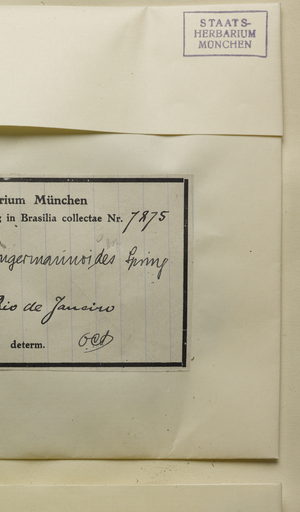 STAATS-
HERBARIUM
MÜNCHEN
rium München
in Brasilia collectae Nr. 7875
ngermannioides Spring
Rio de Janeiro
determ.